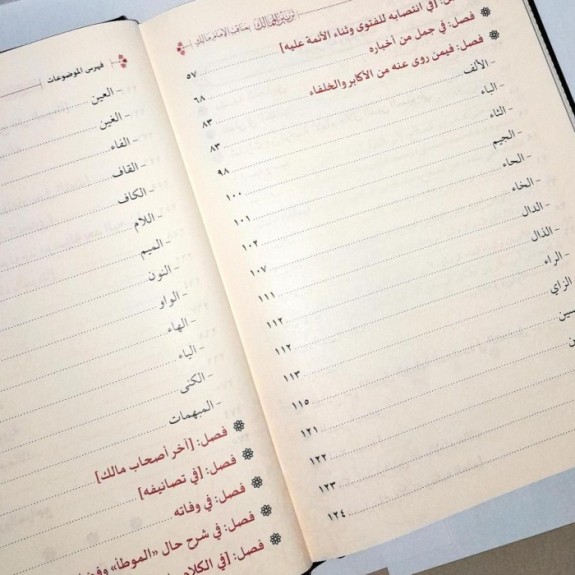 تزيين الممالك بمناقب الإمام مالك
[في انتصابه للفتوى وثناء الأئمة عليه] ٥٧
فصل: في جمل من أخباره ٦٨
فصل: فيمن روى عنه من الأكابر والخلفاء ٨٣
- الألف ٨٣
- الباء ٩٨
- الثاء ١٠٠
- الجيم ١٠١
- الحاء ١٠٢
- الخاء ١٠٧
- الدال ١١١
- الذال ١١٢
- الراء ١١٢
الزاي ١١٣
سين ١١٥
ين ١٢١
١٢٢
١٢٣
١٢٤
فهرس الموضوعات
- العين
- الغين
- الفاء
- القاف
- الكاف
- اللام
- الميم
- النون
- الواو
- الهاء
- الياء
- الكنى
- المبهمات
فصل: [آخر أصحاب مالك]
فصل: [في تصانيفه]
فصل: في وفاته
فصل: في شرح حال «الموطأ»
فصل: [في الكلام